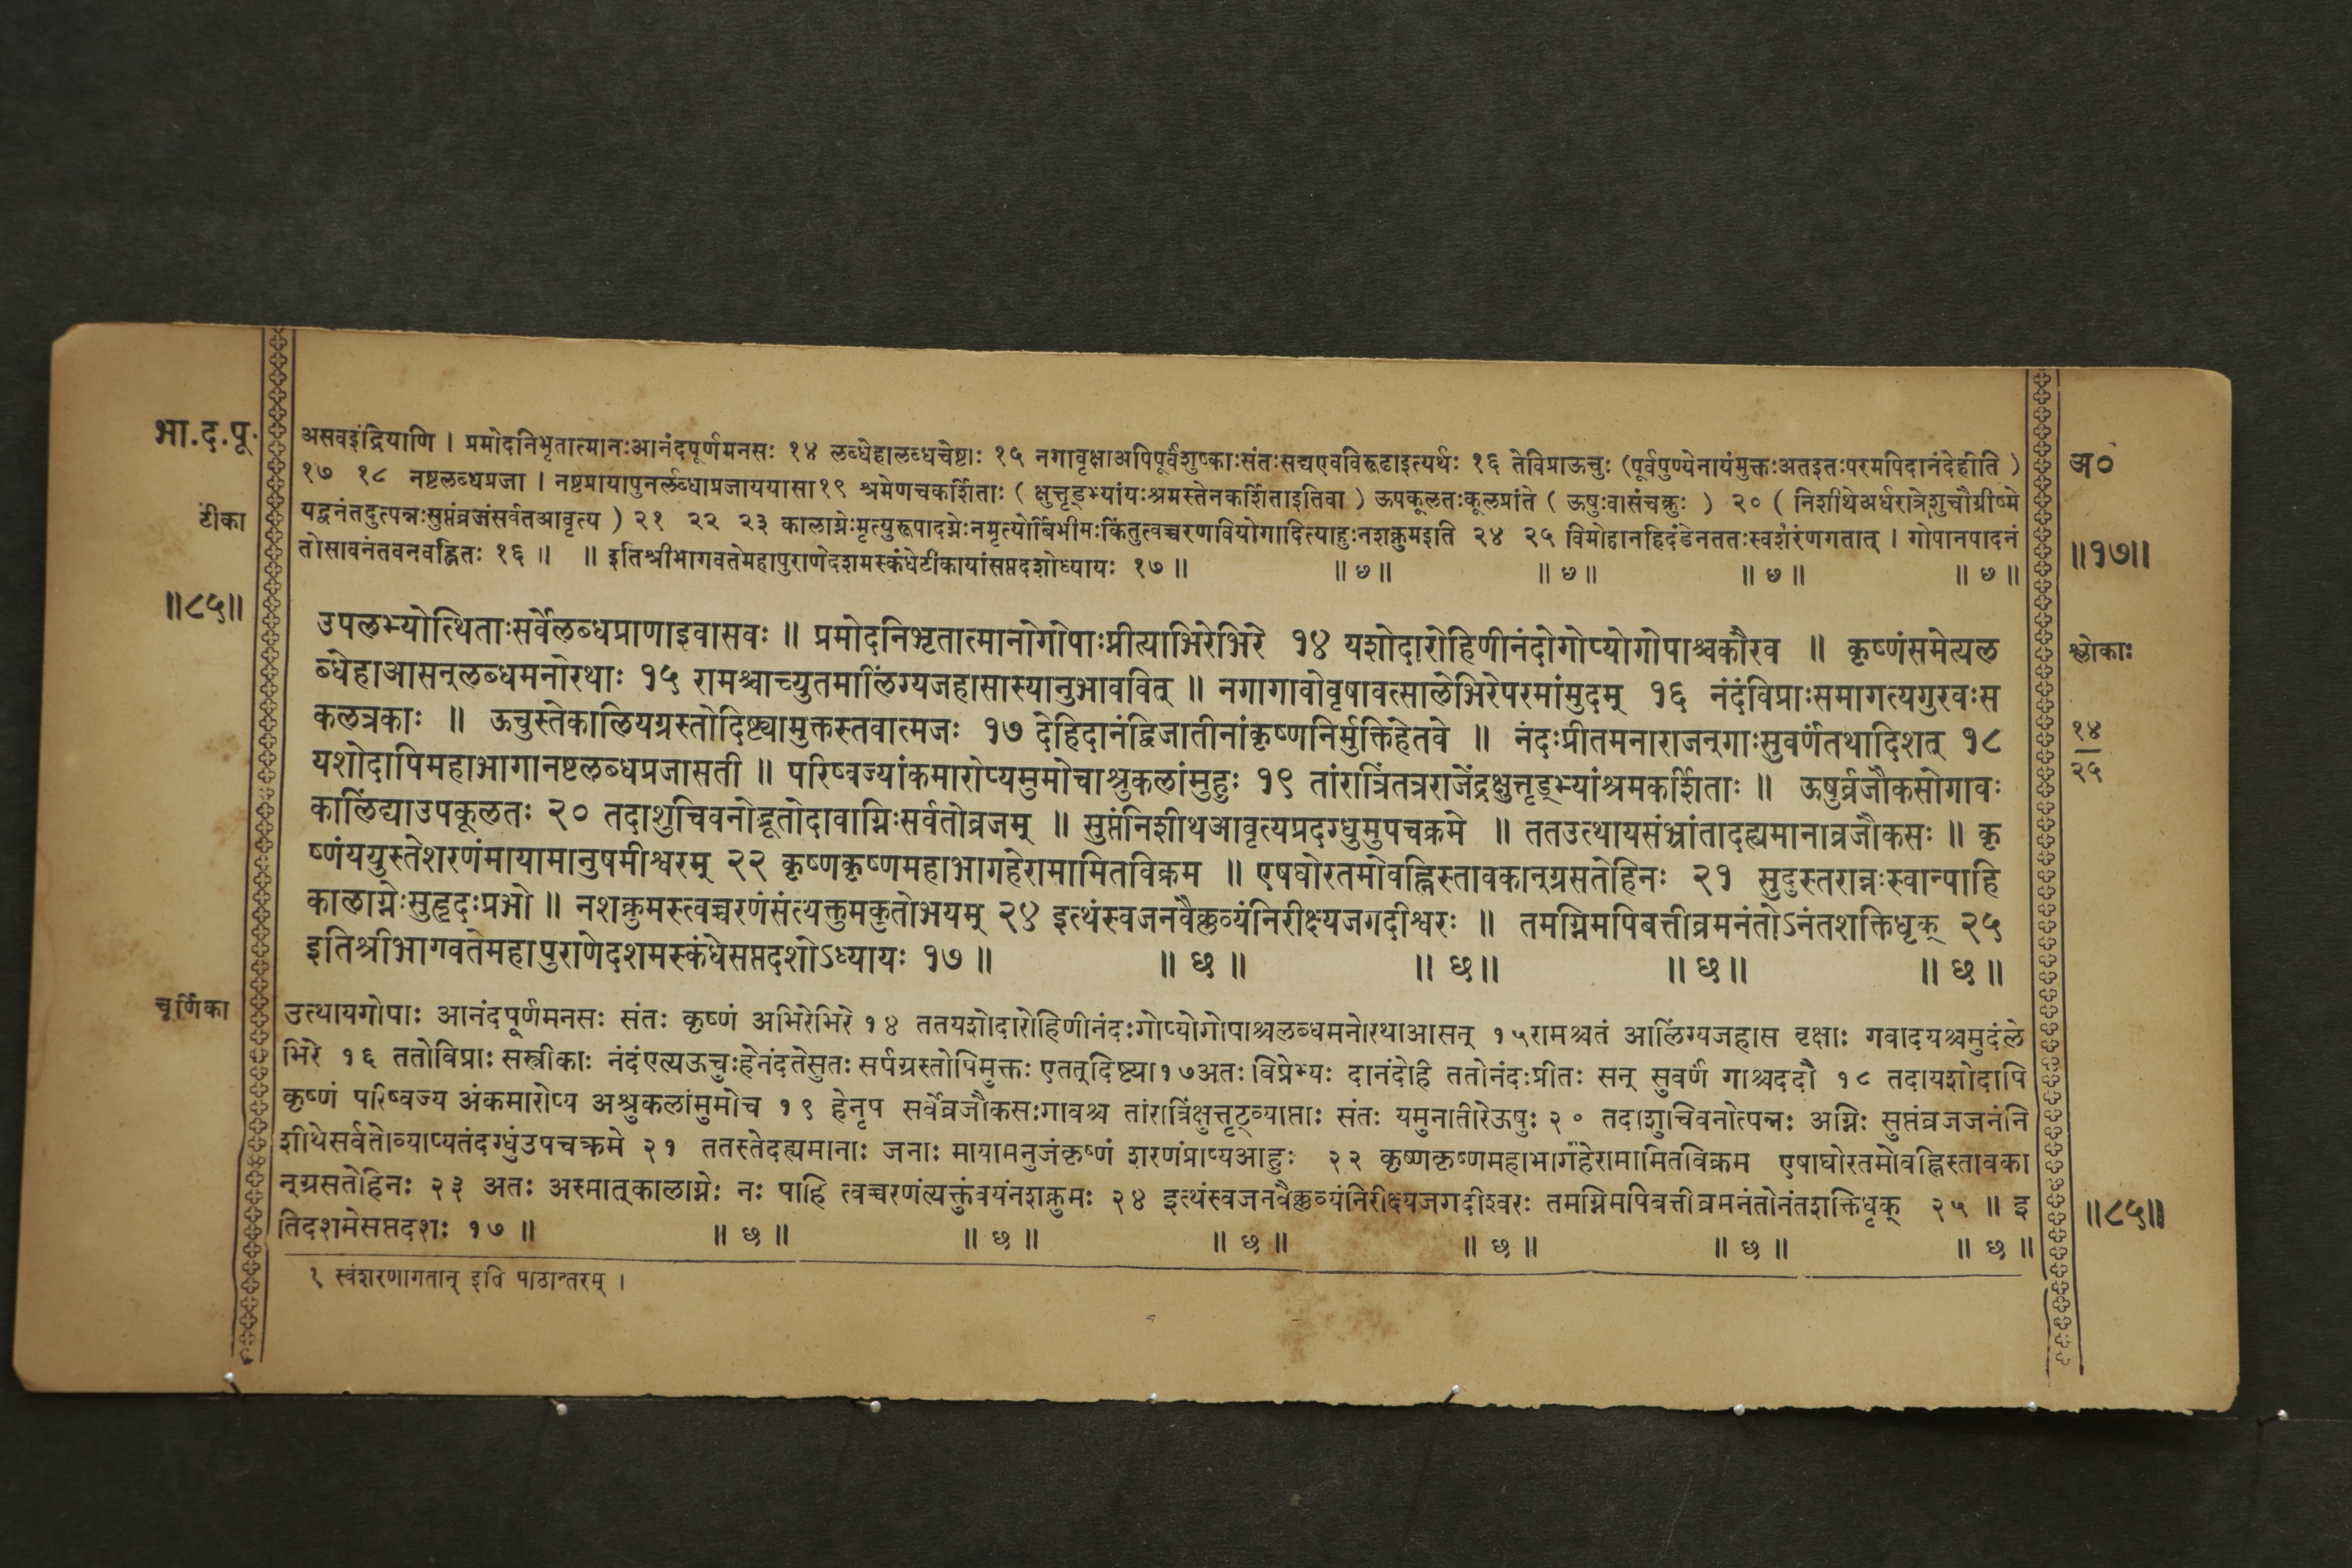 भा.द.पू.
असवइंद्रियाणि । प्रमोदनिभृतात्मानःआनंदपूर्णमनसः १४ लब्धेहालब्धचेष्टाः १५ नगावृक्षाअपिपूर्वंशुष्काःसंतःसद्यएवविरूढाइत्यर्थः १६ तेविप्राऊचुः (पूर्वपुण्येनायंमुक्तःअतइतःपरमपिदानंदेहीति )
अ०
१७ १८ नष्टलब्धप्रजा । नष्टप्रायापुनर्लब्धाप्रजाययासा१९ श्रमेणचकर्शिताः ( क्षुत्तृड्भ्यांयःश्रमस्तेनकर्शिताइतिवा ) ऊपकूलतःकूलप्रांते ( ऊषुःवासंचक्रुः ) २० ( निशीथेअर्धरात्रेशुचौग्रीष्मे
टीका
यद्वनंतदुत्पन्नःसुप्तंव्रजंसर्वतआवृत्य ) २१ २२ २३ कालाग्नेःमृत्युरूपादग्नेःनमृत्योर्बिभीमःकिंतुत्वच्चरणवियोगादित्याहुःनशक्नुमइति २४ २५ विमोहानहिदंडेनततःस्वशंरंणगतात् । गोपानपादनं
तोसावनंतवनवह्नितः १६ ॥ ॥ इतिश्रीभागवतेमहापुराणेदशमस्कंधेटीकायांसप्तदशोध्यायः १७ ॥ ॥ छ ॥ ॥ छ ॥ ॥ छ ॥ ॥ छ ॥
॥१७॥
॥८५॥
उपलभ्योत्थिताःसर्वेलब्धप्राणाइवासवः ॥ प्रमोदनिभृतात्मानोगोपाःप्रीत्याभिरेभिरे १४ यशोदारोहिणीनंदोगोप्योगोपाश्चकौरव ॥ कृष्णंसमेत्यल
श्लोकाः
ब्धेहाआसन्लब्धमनोरथाः १५ रामश्चाच्युतमालिंग्यजहासास्यानुभाववित् ॥ नगागावोवृषावत्सालेभिरेपरमांमुदम् १६ नंदंविप्राःसमागत्यगुरवःस
कलत्रकाः ॥ ऊचुस्तेकालियग्रस्तोदिष्ट्यामुक्तस्तवात्मजः १७ देहिदानंद्विजातीनांकृष्णनिर्मुक्तिहेतवे ॥ नंदःप्रीतमनाराजन्गाःसुवर्णंतथादिशत् १८
१४
२५
यशोदापिमहाभागानष्टलब्धप्रजासती ॥ परिष्वज्यांकमारोप्यमुमोचाश्रुकलांमुहुः १९ तांरात्रिंतत्रराजेंद्रक्षुत्तृड्भ्यांश्रमकर्शिताः ॥ ऊषुर्व्रजौकसोगावः
कालिंद्याउपकूलतः २० तदाशुचिवनोद्भूतोदावाग्निःसर्वतोव्रजम् ॥ सुप्तंनिशीथआवृत्यप्रदग्धुमुपचक्रमे ॥ ततउत्थायसंभ्रांतादह्यमानाव्रजौकसः ॥ कृ
ष्णंययुस्तेशरणंमायामानुषमीश्वरम् २२ कृष्णकृष्णमहाभागहेरामामितविक्रम ॥ एषघोरतमोवह्निस्तावकान्ग्रसतेहिनः २१ सुदुस्तरान्नःस्वान्पाहि
कालाग्नेःसुहृदःप्रभो ॥ नशक्नुमस्त्वच्चरणंसंत्यक्तुमकुतोभयम् २४ इत्थंस्वजनवैक्लव्यंनिरीक्ष्यजगदीश्वरः ॥ तमग्निमपिबत्तीव्रमनंतोऽनंतशक्तिधृक् २५
इतिश्रीभागवतेमहापुराणेदशमस्कंधेसप्तदशोऽध्यायः १७ ॥ ॥ छ ॥ ॥ छ ॥ ॥ छ ॥ ॥ छ ॥
चूर्णिका
उत्थायगोपाः आनंदपूर्णमनसः संतः कृष्णं अभिरेभिरे १४ ततयशोदारोहिणीनंदःगोप्योगोपाश्चलब्धमनोरथाआसन् १५रामश्चतं आलिंग्यजहास वृक्षाः गवादयश्चमुदंले
भिरे १६ ततोविप्राः सस्त्रीकाः नंदंएत्यऊचुःहेनंदतेसुतः सर्पग्रस्तोपिमुक्तः एतत्दिष्ट्या१७अतः विप्रेभ्यः दानंदेहि ततोनंदःप्रीतः सन् सुवर्णं गाश्चददौ १८ तदायशोदापि
कृष्णं परिष्वज्य अंकमारोप्य अश्रुकलांमुमोच १९ हेनृप सर्वेव्रजौकसःगावश्च तांरात्रिंक्षुत्तृट्व्याप्ताः संतः यमुनातीरेऊषुः २० तदाशुचिवनोत्पन्नः अग्निः सुप्तंव्रजजनंनि
शीथेसर्वतोव्याप्यतंदग्धुंउपचक्रमे २१ ततस्तेदह्यमानाः जनाः मायामनुजंकृष्णं शरणंप्राप्यआहुः २२ कृष्णकृष्णमहाभागहेरामामितविक्रम एषाघोरतमोवह्निस्तावका
न्ग्रसतेहिनः २३ अतः अस्मात्कालाग्नेः नः पाहि त्वच्चरणंत्यक्तुंवयंनशक्नुमः २४ इत्थंस्वजनवैक्लव्यंनिरीक्ष्यजगदीश्वरः तमग्निमपिबत्तीव्रमनंतोनंतशक्तिधृक् २५ ॥ इ
॥८५॥
तिदशमेसप्तदशः १७ ॥ ॥ छ ॥ ॥ छ ॥ ॥ छ ॥ ॥ छ ॥ ॥ छ ॥ ॥ छ ॥
१ स्वंशरणागतान् इति पाठान्तरम् ।